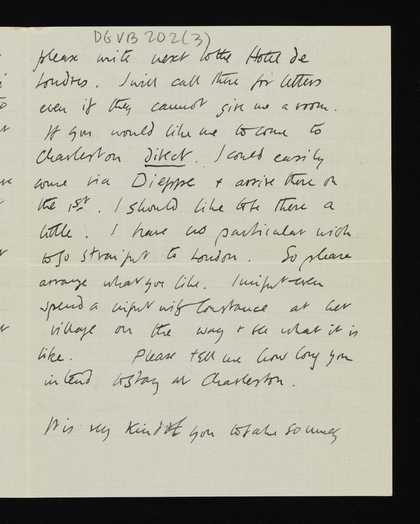 DGVB 202(3)
please write next to the Hotel de
Londres. I will call there for letters
even if they cannot give me a room.
If you would like me to come to
Charleston direct. I could easily
come via Dieppe + arrive there on
the 1st. I should like to be there a
little. I have no particular wish
to go straight to London. So please
arrange what you like. I might even
spend a night with Constance at her
village on the way + see what it is
like. Please tell me how long you
intend to stay at Charleston.
It is very kind of you to take so much